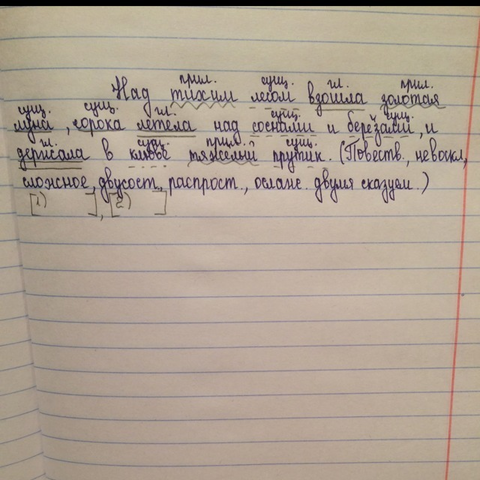 прил. сущ. гл. прил.
Над тихим лесом взошла золотая
сущ. сущ. гл. сущ. сущ.
луна, сорока летела над соснами и берёзами, и
гл. сущ. прил. сущ.
держала в клюве тяжёлый прутик. (Повеств., невоскл,
сложное, двусост., распрост., ослож. двумя сказуем.)
[1) ], [2) ]